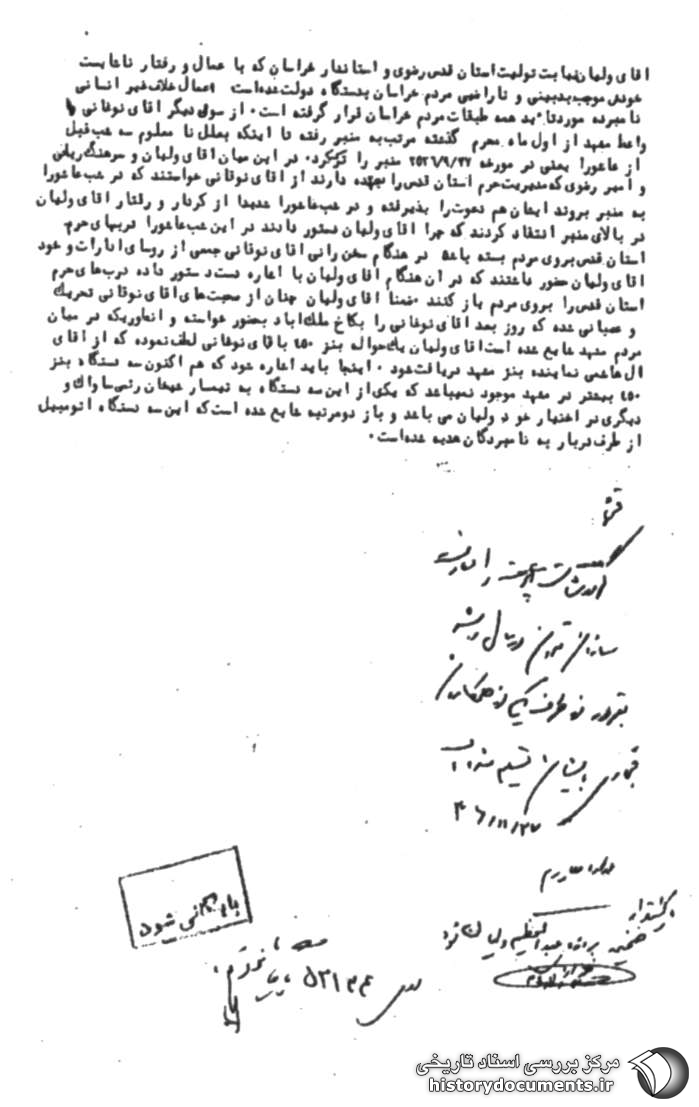 آقای ولیان نیابت تولیت استان قدس رضوی و استاندار خراسان که با عمال و رفتار ناشایست
خودش موجب بدبینی و نارضایی مردم خراسان بدستگاه دولت شده است اعمال خلاف غیر انسانی
نامبرده مورد تأیید همه طبقات مردم خراسان قرار گرفته است۰ از سوی دیگر آقای نوغانی
واعظ مشهد از اول ماه محرم گذشته مرتب به منبر رفته تا اینکه بعلل نا معلوم سه شب قبل
از عاشورا یعنی در مورخه ۲۵۳۶/۹/۲۷ منبر را ترک کرد۰ در این میان آقای ولیان و سرهنگ
و امیر رضوی که مدیریت حرم استان قدس را بعهده دارند از آقای نوغانی خواستند که در شب عاشورا
به منبر بروند ایشان هم دعوت را پذیرفته و در شب عاشورا شدیدا از کردار و رفتار آقای ولیان
در بالای منبر انتقاد کردند که چرا آقای ولیان دستور دادند در این شب عاشورا دربهای حرم
استان قدس بروی مردم بسته باشد در هنگام سخن رانی آقای نوغانی جمعی از روسای ادارات و خود
آقای ولیان حضور داشتند که در آن هنگام آقای ولیان با اشاره دست دستور داده درب های حرم
استان قدس را بروی مردم باز کنند ضمنا آقای ولیان چنان از صحبت های آقای نوغانی تحریک
و عصبانی شده که روز بعد آقای نوغانی را بکاخ ملک آباد بحضور خواسته و آنطوریکه در میان
مردم مشهد شایع شده است آقای ولیان یک حواله بنز ۴۵۰ با قای نوغانی لطف نموده که از آقای
آل هاشمی نماینده بنز مشهد دریافت شود ۰ اینجا باید اشاره شود که هم اکنون سه دستگاه بنز
۴۵۰ بیشتر در مشهد موجود نمیباشد که یکی از این سه دستگاه به تیمسار شیخان رئیس ساواک و
دیگری در اختیار خود ولیان می باشد و باز دو مرتبه شایع شده است که این سه دستگاه اتومبیل
از طرف دربار به نامبردگان هدیه شده است۰
را
سازمان تهران ارسال
بایشان تسلیم
۳۶/۱۱/۲۷
ضمیمه پرونده عبدالعظیم ولیان شود
بایگانی شود
۵۲۱۴۴
مرکز بررسی اسناد تاریخی
historydocuments.ir